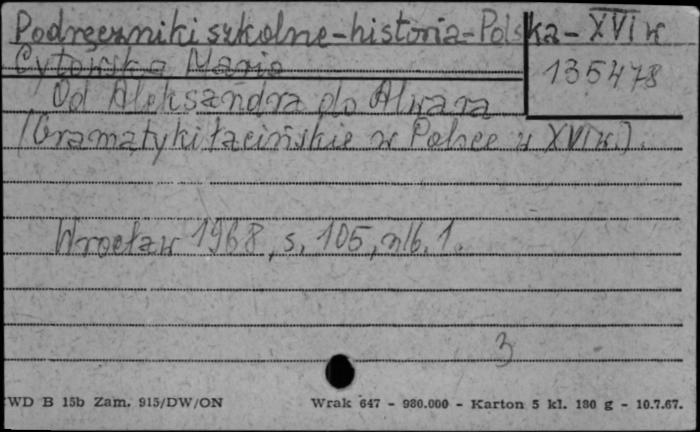 Podręczniki szkolne-historia-Polska-XVI w
Cytowska Maria
135478
Od Aleksandra do Alwara
(Gramatyki łacińskie w Polsce w XVI w.).
Wrocław 1968, s. 105, nlb. 1.
3
WD B 15b Zam. 915/DW/ON Wrak 647 - 980.000 - Karton 5 kl. 180 g - 10.7.67.